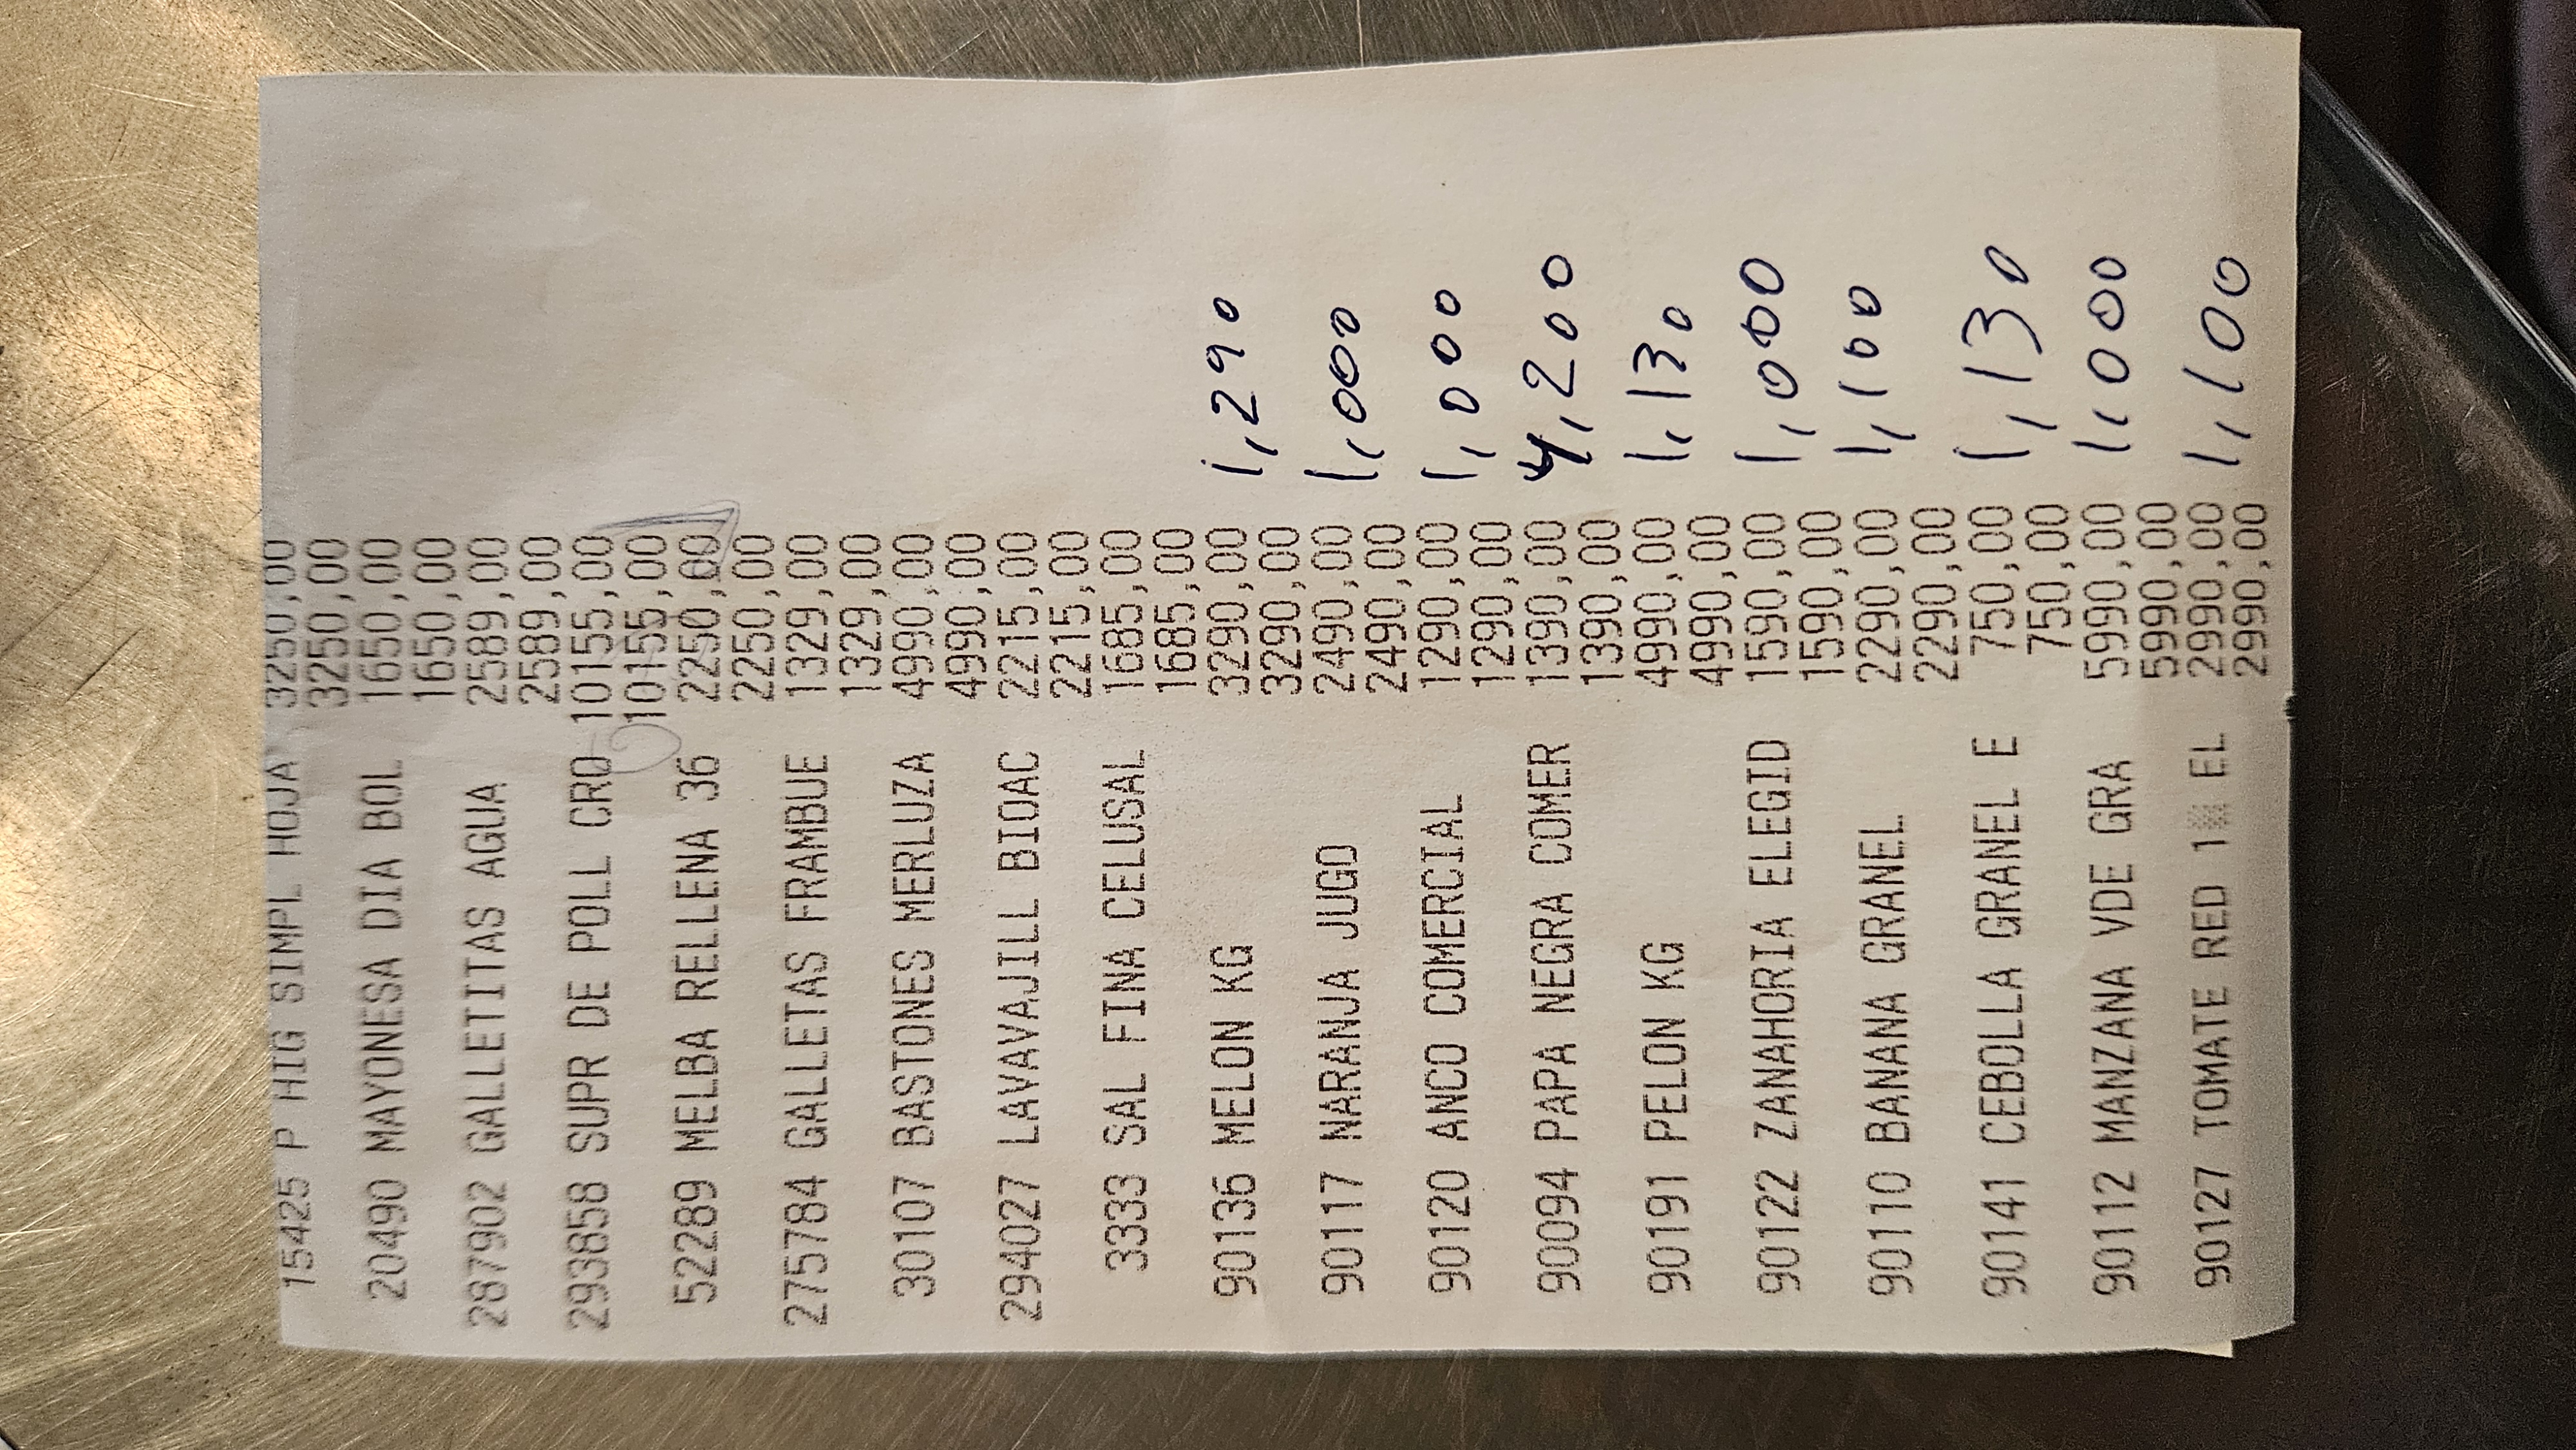 15425 P HIG SIMPL HOJA 3250,00
3250,00
20490 MAYONESA DIA BOL 1650,00
1650,00
287902 GALLETITAS AGUA 2589,00
2589,00
293858 SUPR DE POLL CRO 10155,00
10155,00
52289 MELBA RELLENA 36 2250,00
2250,00
275784 GALLETAS FRAMBUE 1329,00
1329,00
30107 BASTONES MERLUZA 4990,00
4990,00
294027 LAVAVAJILL BIOAC 2215,00
2215,00
33333 SAL FINA CELUSAL 1685,00
1685,00
90136 MELON KG 3290,00 1,290
3290,00
90117 NARANJA JUGO 2490,00 1,000
2490,00
90120 ANCO COMERCIAL 1290,00 1,000
1290,00
90094 PAPA NEGRA COMER 1390,00 4,200
1390,00
90191 PELON KG 4990,00 1,130
4990,00
90122 ZANAHORIA ELEGID 1590,00 1,000
1590,00
90110 BANANA GRANEL 2290,00 1,100
2290,00
90141 CEBOLLA GRANEL E 750,00 1,130
750,00
90112 MANZANA VDE GRA 5990,00 1,000
5990,00
90127 TOMATE RED 1 EL 2990,00 1,100
2990,00